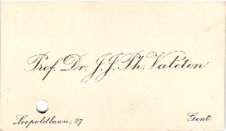 Prof. Dr. J. J. Ph. Valeton
Leopoldlaan, 97
Gent